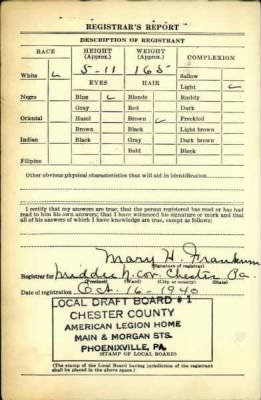 REGISTRAR'S REPORT
DESCRIPTION OF REGISTRANT
RACE HEIGHT (Approx.) WEIGHT (Approx.) COMPLEXION
White ✓ 5-11 165 Sallow
EYES HAIR Light ✓
Negro Blue ✓ Blonde Ruddy
Gray Red Dark
Oriental Hazel Brown ✓ Freckled
Brown Black Light brown
Indian Black Gray Dark brown
Bald Black
Filipino
Other obvious physical characteristics that will aid in identification
I certify that my answers are true; that the person registered has read or has had
read to him his own answers; that I have witnessed his signature or mark and that
all of his answers of which I have knowledge are true, except as follows:
Mary H.
(Signature of registrar)
Registrar for Chester Pa.
(Precinct) (Ward) (City or county) (State)
Date of registration Oct. 16-1940
LOCAL DRAFT BOARD #1
CHESTER COUNTY
AMERICAN LEGION HOME
MAIN & MORGAN STS.
PHOENIXVILLE, PA.
(STAMP OF LOCAL BOARD)
(The stamp of the Local Board having jurisdiction of the registrant
shall be placed in the above space.)